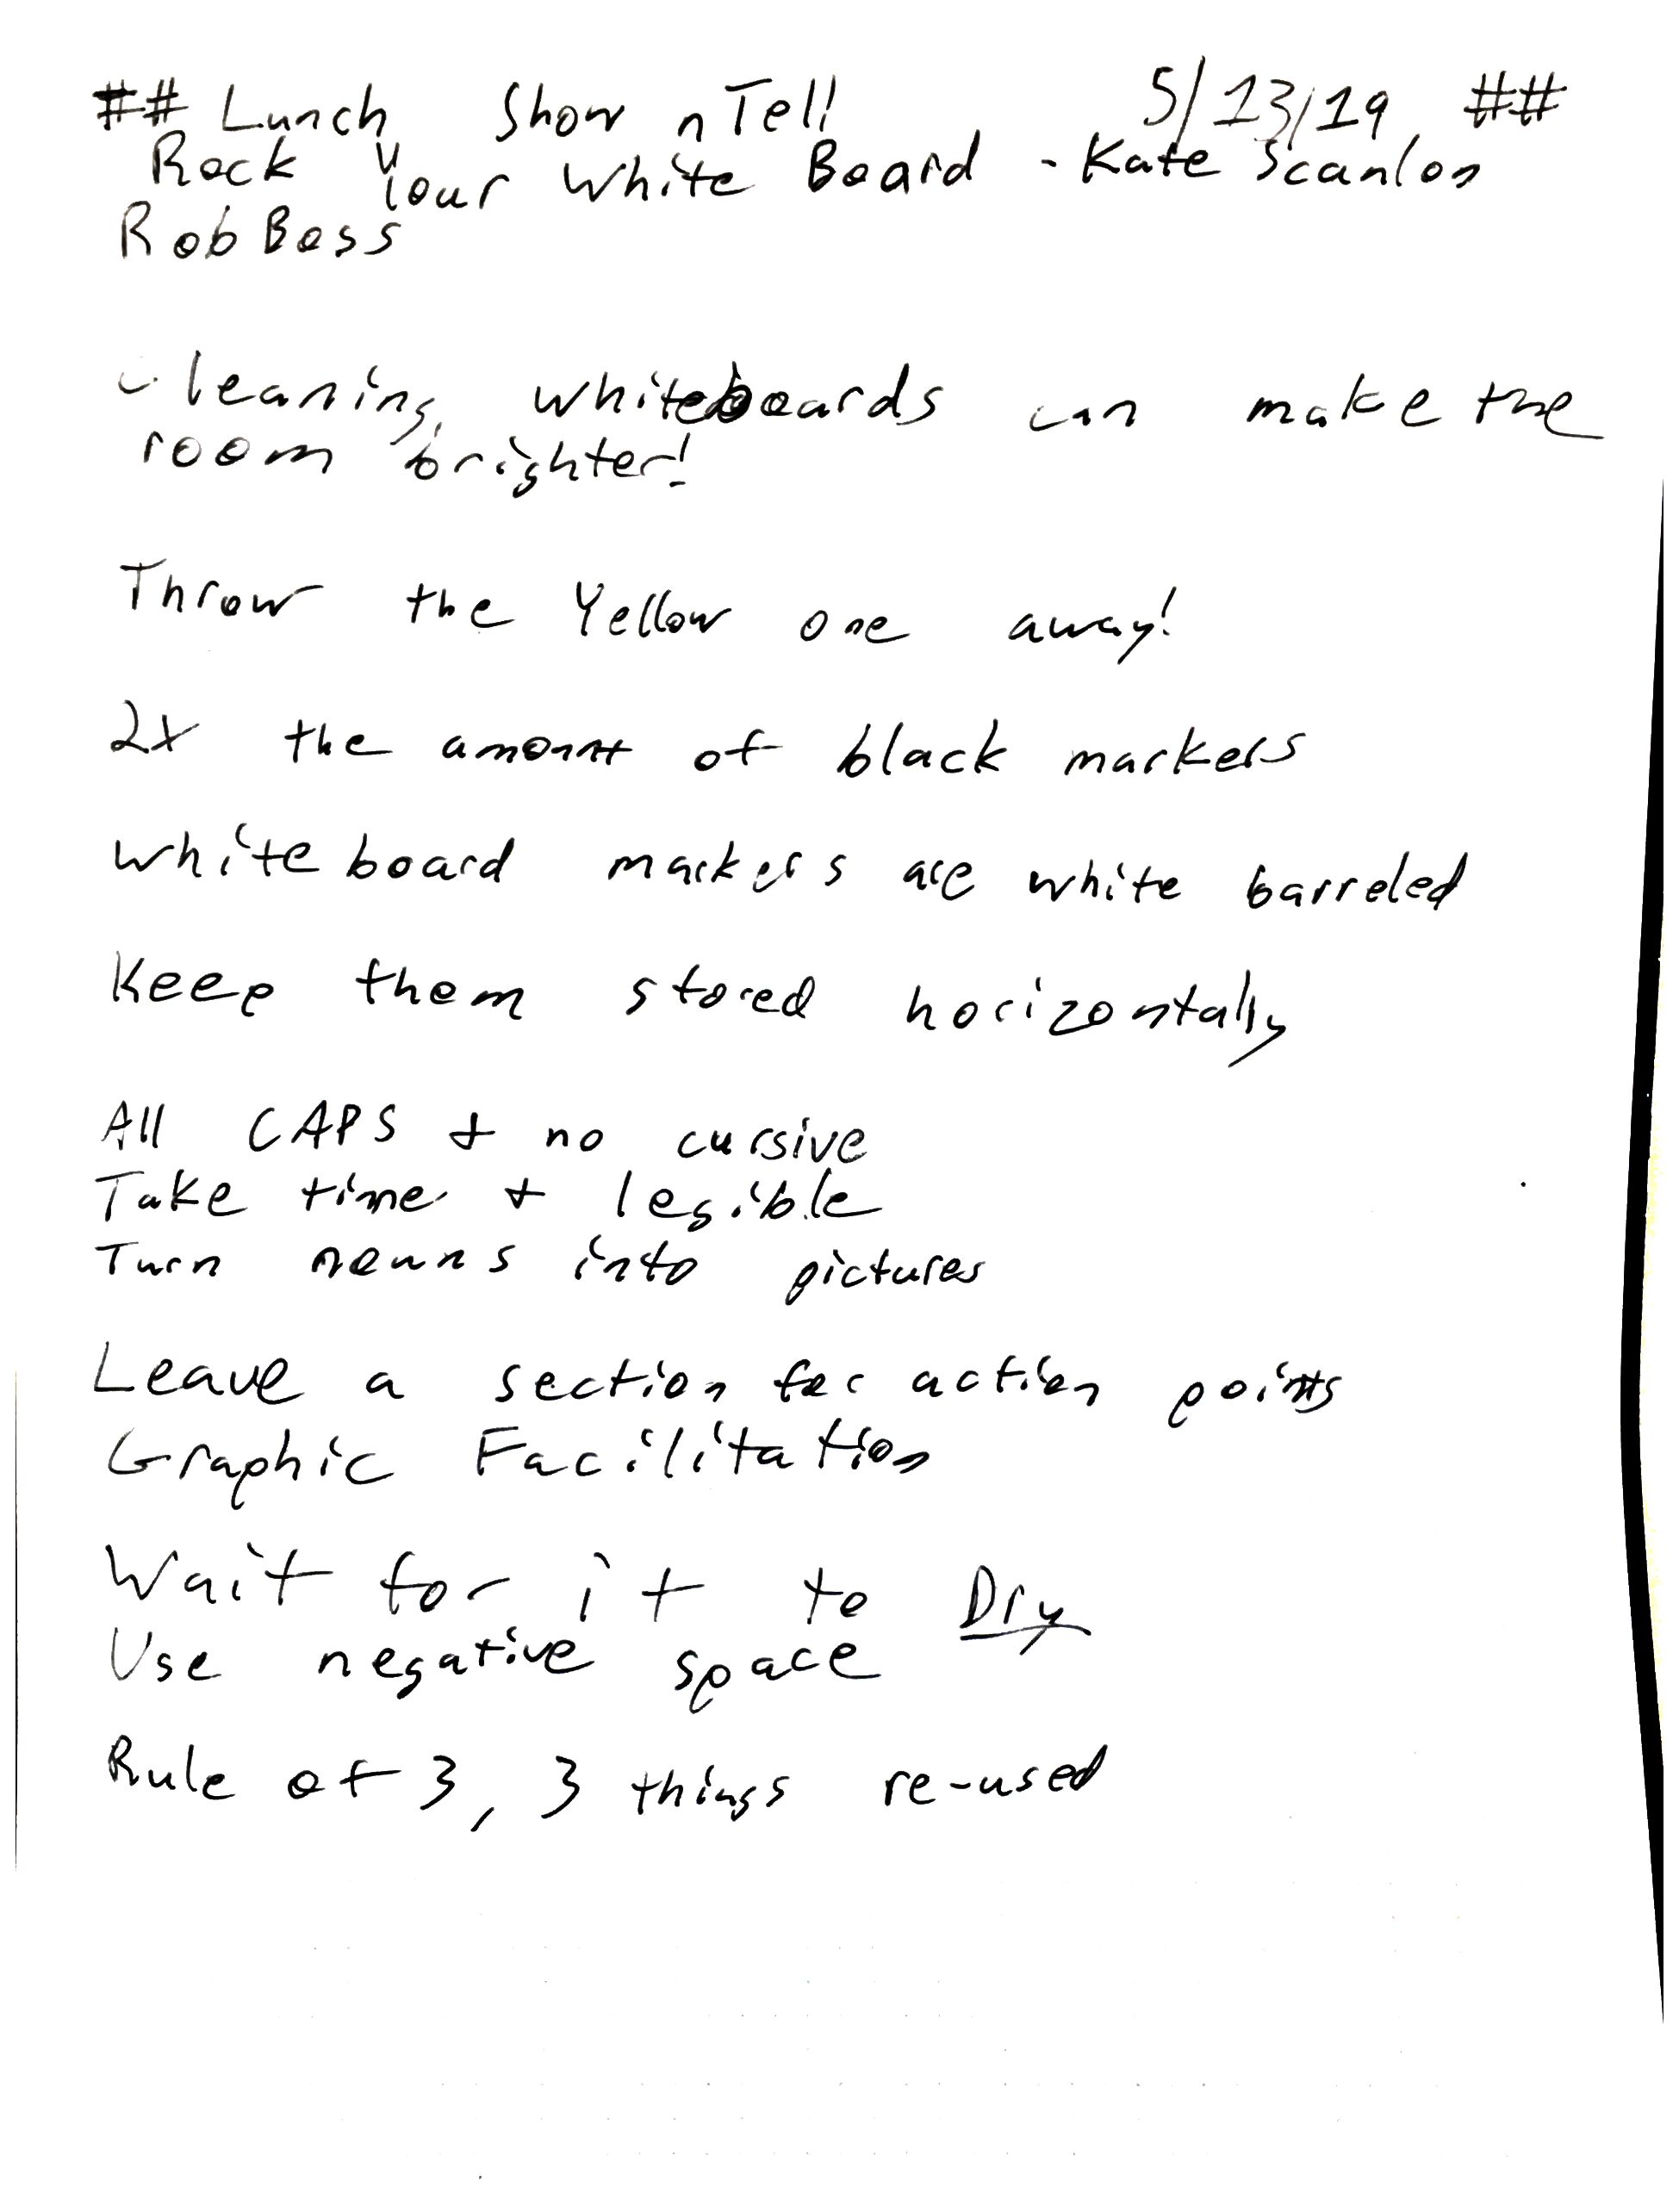 ## Lunch Show n Tell 5/13/19 ##
Rock Your White Board - Kate Scanlon
Rob Boss
Cleaning whiteboards can make the
room brighter!
Throw the Yellow one away!
2x the amount of black markers
white board markers are white barreled
Keep them stored horizontally
All CAPS + no cursive
Take time + legible
Turn nouns into pictures
Leave a section for action points
Graphic Facilitation
Wait for it to Dry
Use negative space
Rule of 3, 3 things re-used